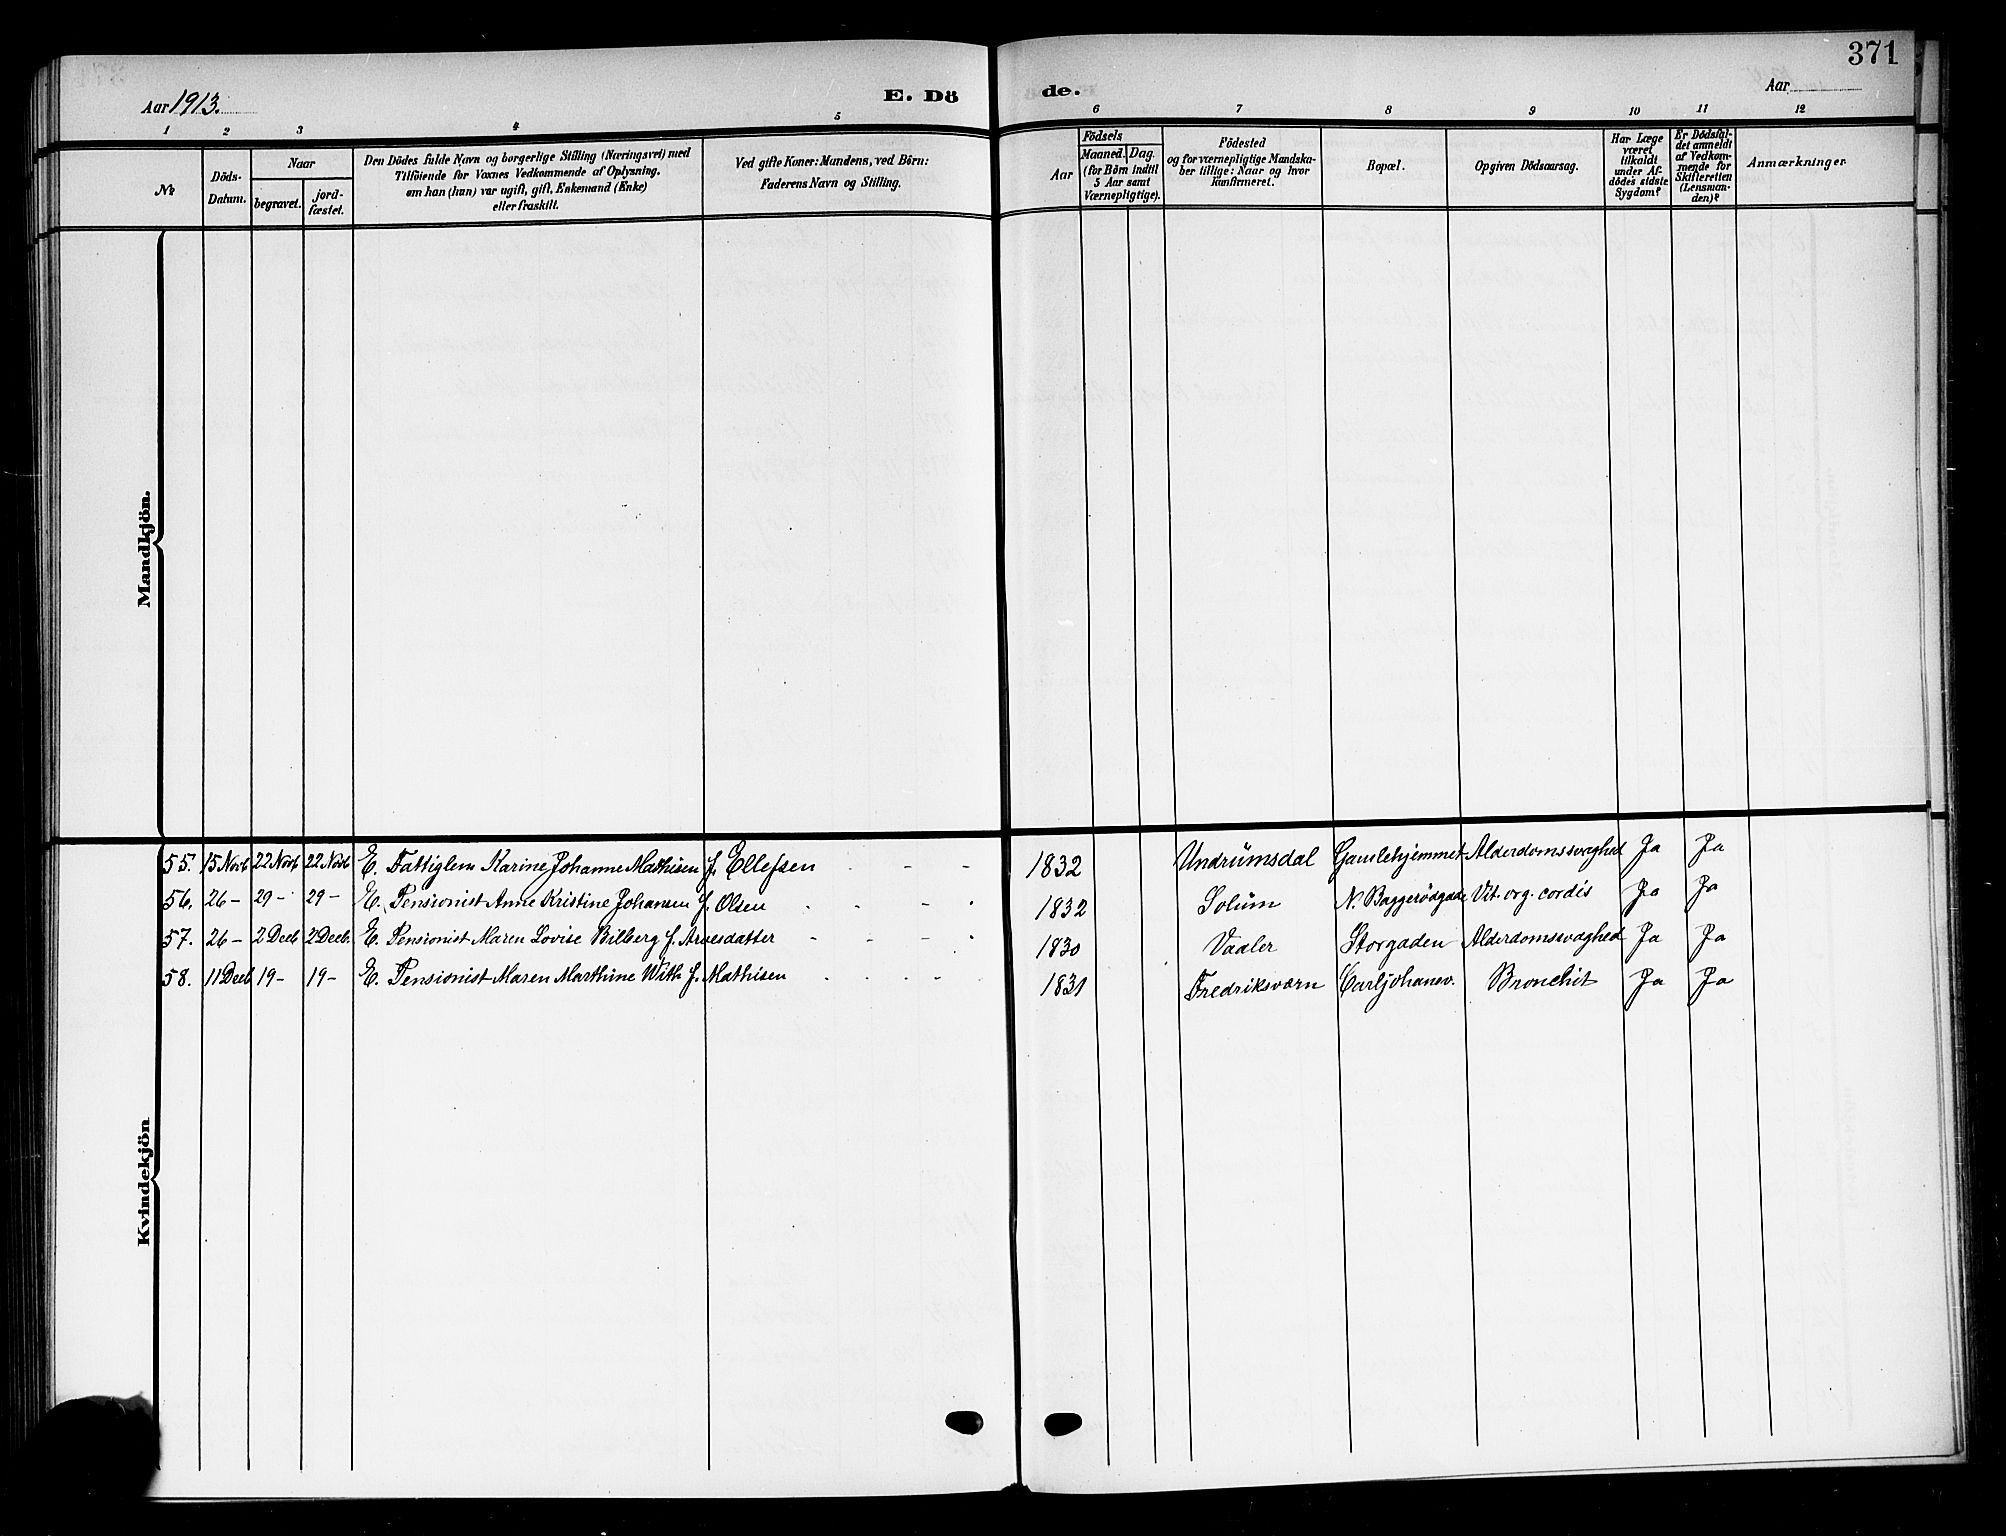 371
Aar 1913.
E. Dö
de.
Aar
1 2 3 4 5 6 7 8 9 10 11 12
№
Döds-
Datum.
Naar
begravet.
jord-
fæstet.
Den Dödes fulde Navn og borgerlige Stilling (Næringsvei) med
Tilföiende for Voxnes Vedkommende af Oplysning,
om han (hun) var ugift, gift, Enkemand (Enke)
eller fraskilt.
Ved gifte Koner: Mandens, ved Börn:
Faderens Navn og Stilling.
Födsels
Aar
Maaned.
Dag.
(for Börn indtil
5 Aar samt
Værnepligtige).
Födested
og for værnepligtige Mandska-
ber tillige: Naar og hvor
konfirmeret.
Bopæl.
Opgiven Dödsaarsag.
Har Læge
været
tilkaldt
under Af-
dödes sidste
Sygdom?
Er Dödsfal-
det anmeldt
af Vedkom-
mende for
Skifteretten
(Lensman-
den)?
Anmærkninger
Mandkjön.
Kvindekjön
55. 15 Novb 22 Novb 22 Novb E. Fattiglem Karine Johanne Mathisen f. Ellefsen - - - 1832 Undrumsdal Gamlehjemmet Alderdomssvaghed Ja Ja
56. 26 - 29 - 29 - E. Pensionist Anne Kristine Johansen f. Olsen - - - 1832 Solum N. Baggerödgade Vit. org. cordis Ja Ja
57. 26 - 2 Decb 2 Decb. E. Pensionist Maren Lovise Bilberg f. Arvesdatter - - - 1830 Vaaler Storgaden Alderdomssvaghed Ja Ja
58. 11 Decb 19 - 19 - E. Pensionist Maren Marthine With f. Mathisen - - - 1831 Fredriksværn Carljohansv. Bronchit Ja Ja